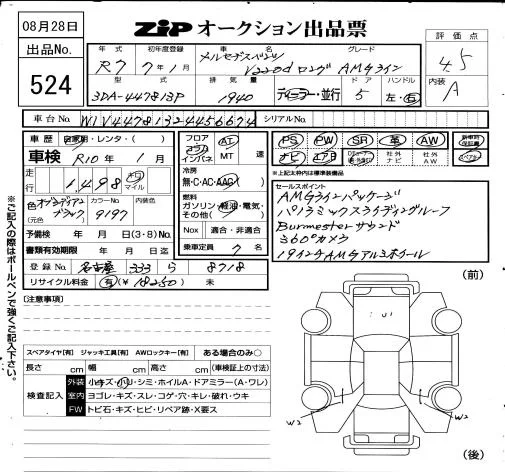 08月28日
ZiP オークション出品票
出品No.
524
評価点
4.5
内装
A
年式 初年度登録 車名 グレード
R7 7年1月 メルセデスベンツ V220d ロング AMGライン
型式 排気量 ドア ハンドル
3DA-447813P 1940 ディーラー・並行 5 左・右
車台No. W1V44781324456674 シリアルNo.
車歴 自家用・レンタ・( )
車検 R10年 1月
走行 1,498 キロ マイル
色 オブシディアンブラック カラーNo. 9197 内装色
(元色)
予備検 年 月 日(3・8)No.
書類有効期限 年 月 日迄
登録No. 名古屋 333 ら 8718
リサイクル料金 有(¥ 18250) 未
フロア コラム インパネ AT MT 速
冷房 無・C・AC・AAC
燃料 ガソリン・軽油・電気・その他( )
Nox 適合・非適合
乗車定員 7 名
PS PW SR 革 AW 新車時保証書
ナビ エアB 社外ナビ 社外AW 
※上記太枠内は標準装備品
セールスポイント
AMGラインパッケージ
パノラミックスライディングルーフ
Burmesterサウンド
360°カメラ
19インチAMGアルミホイール
※ご記入の際はボールペンで強くご記入下さい。
[注意事項]
(前)
U1
W2
W2
(後)
スペアタイヤ[有] ジャッキ工具[有] AWロックキー[有] ある場合のみ○
長さ cm 幅 cm 高さ cm (車検証上の寸法)
検査記入
外装 小キズ・小U・シミ・ホイルA・ドアミラー(A・ワレ)
室内 ヨゴレ・キズ・スレ・コゲ・穴・キレ・破れ・ウキ
FW トビ石・キズ・ヒビ・リペア跡・X要ス